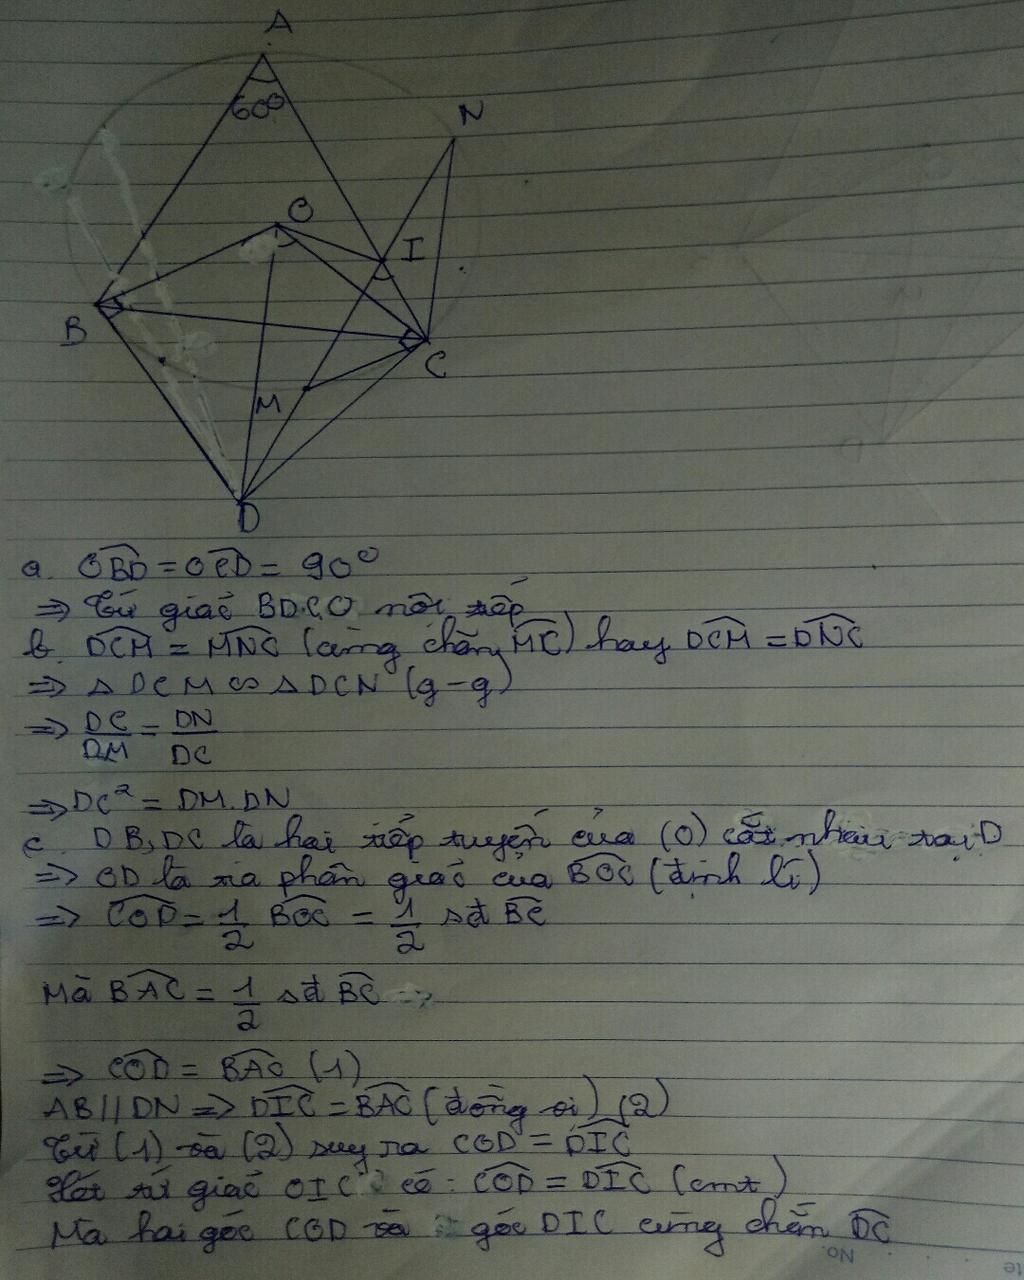 A
60°
N
O
I
B
C
M
D
a. OBD = OCD = 90°
=> Tứ giác BDCO nội tiếp
b. DCM = MNC (cùng chắn MC) hay DCM = DNC
=> △ DCM ∽ △ DCN (g-g)
=> DC/DM = DN/DC
=> DC² = DM.DN
c. DB, DC là hai tiếp tuyến của (O) cắt nhau tại D
=> OD là tia phân giác của BOC (định lí)
=> COD = 1/2 BOC = 1/2 sđ BC
Mà BAC = 1/2 sđ BC
=> COD = BAC (1)
AB // DN => DIC = BAC (đồng vị) (2)
Từ (1) và (2) suy ra COD = DIC
Xét tứ giác OIC có: COD = DIC (cmt)
Ma hai góc COD và góc DIC cùng chắn DC
No.
te